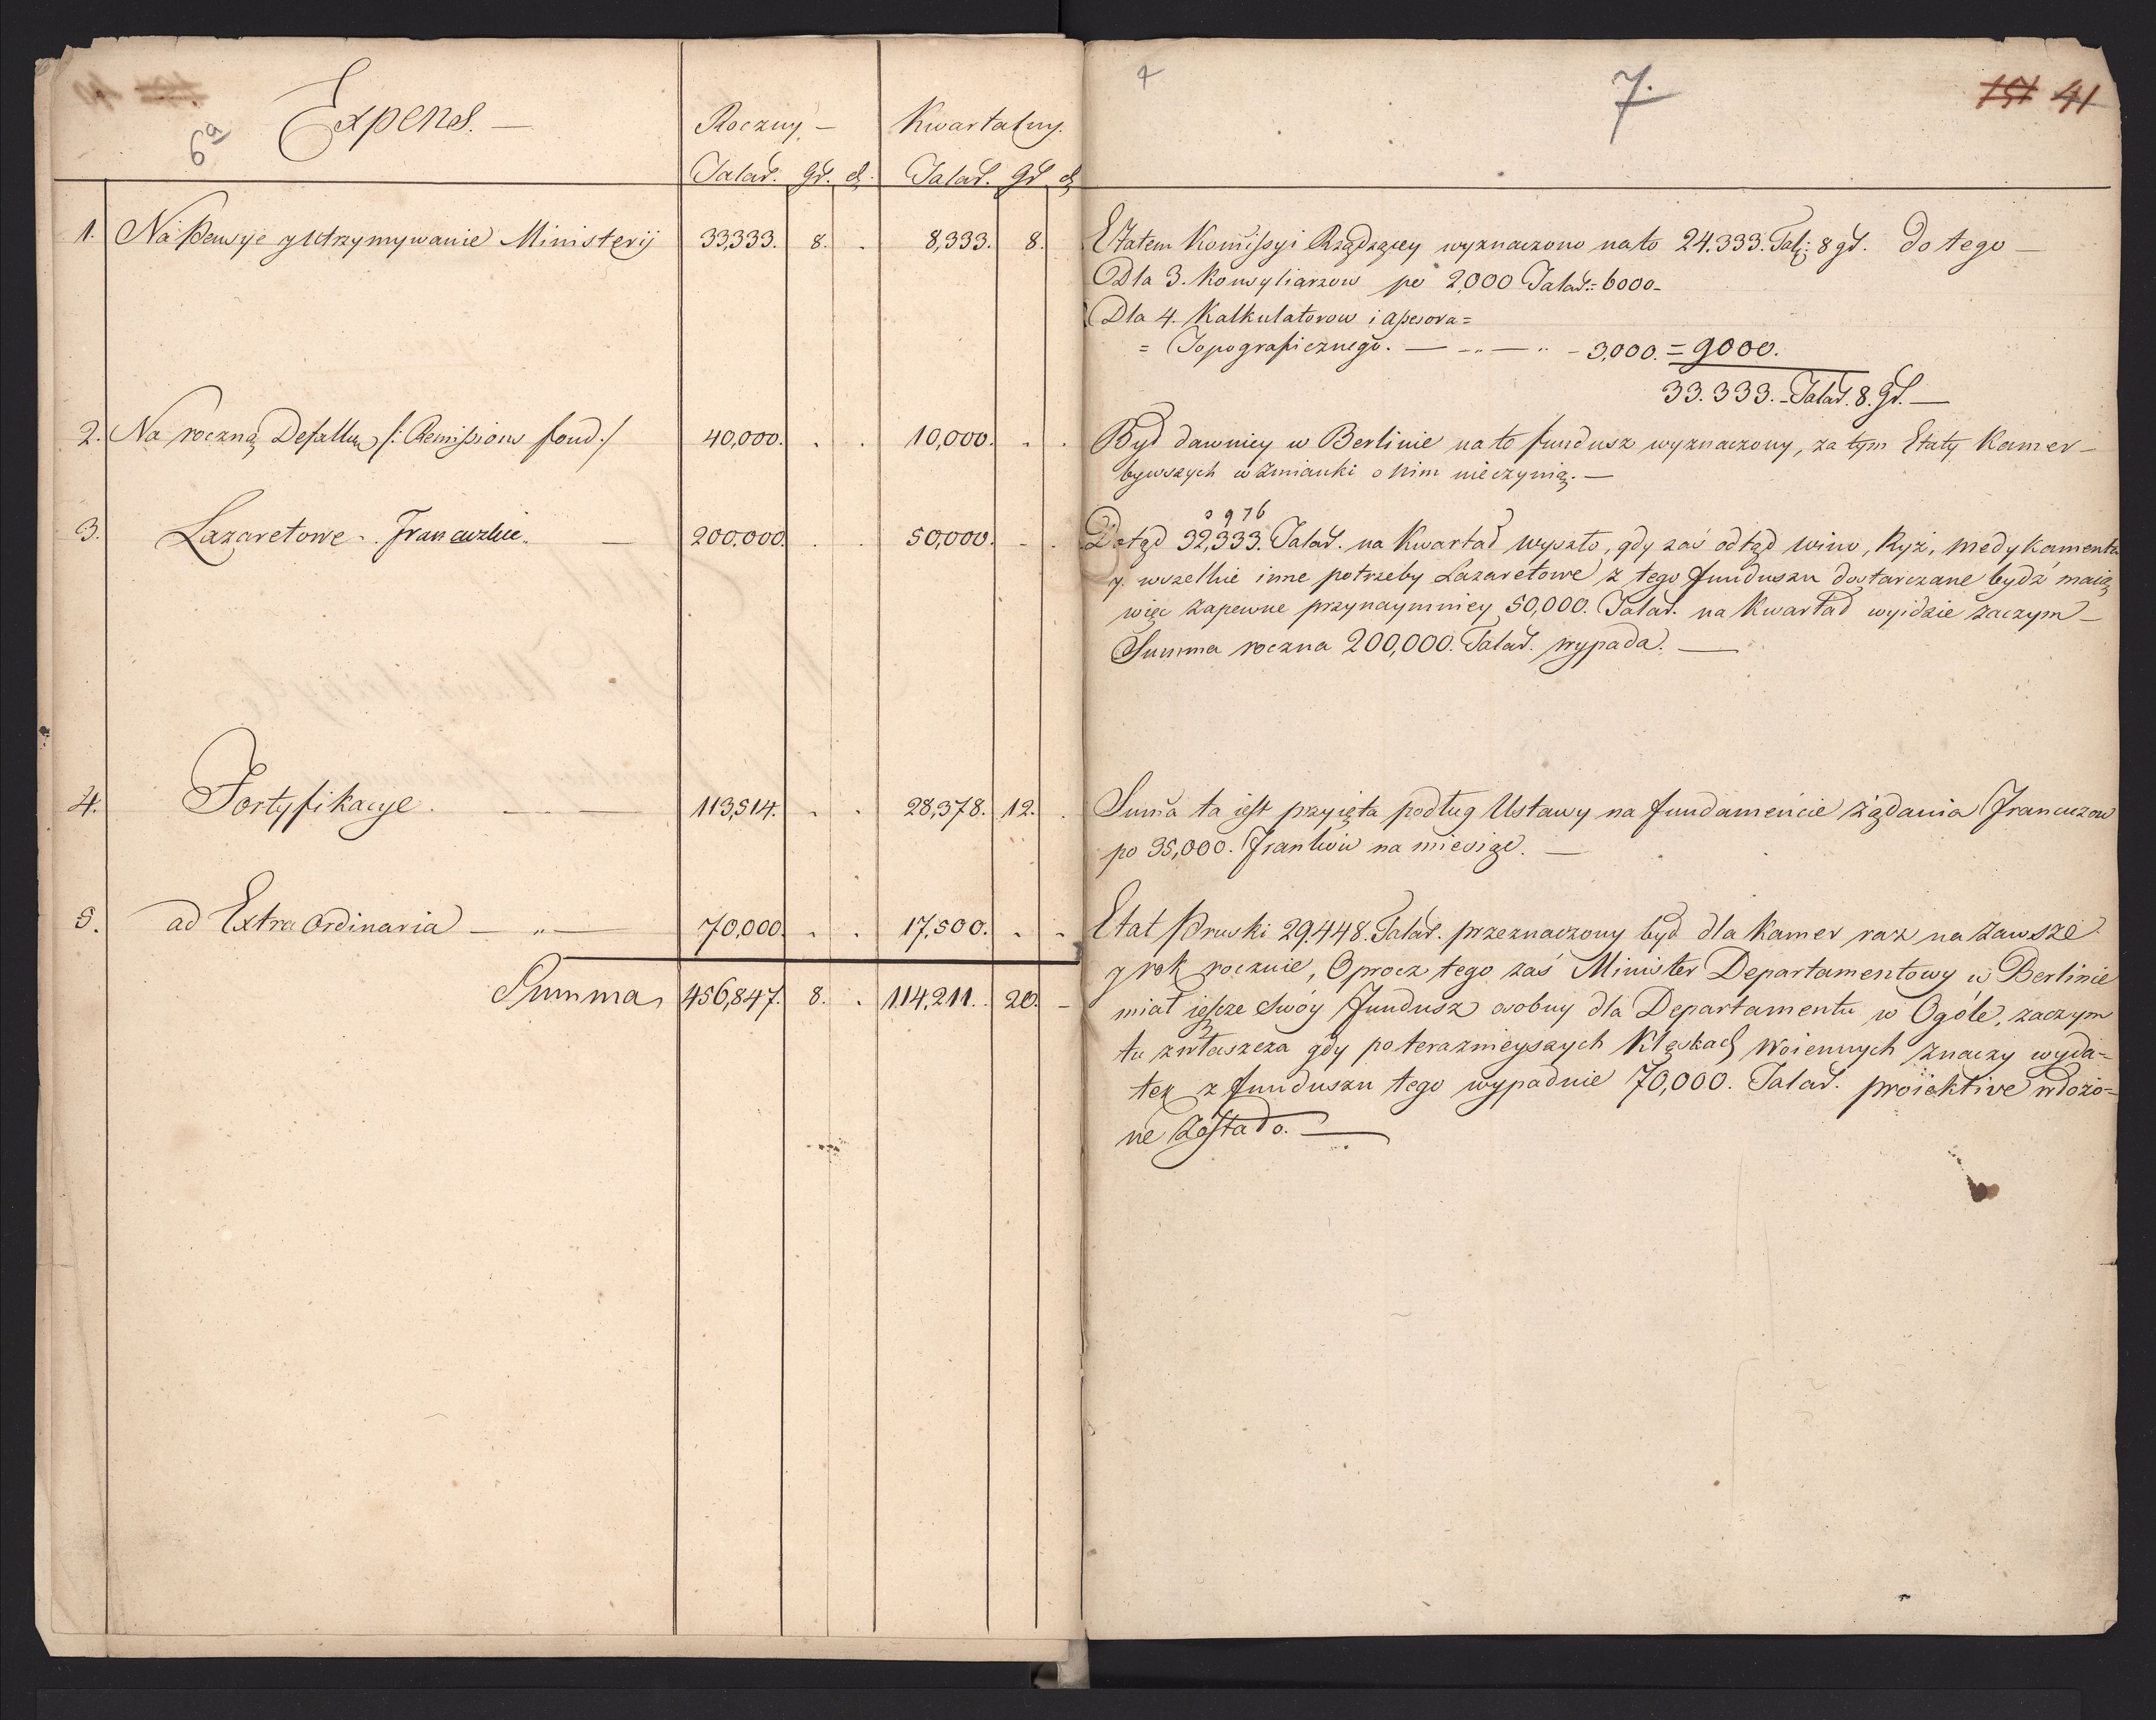 6a
Expens. —
Roczny — Kwartalny.
Talar. gr. d. Talar. gr d
1. Na Pensye y Utrzymywanie Ministerij 33,333. 8. . 8,333. 8.
2. Na roczną Defalkę /: Remission fond :/ 40,000. . . 10,000. . .
3. Lazaretowe Francuzkie — 200.000. . . 50,000. - .
4. Fortyfikacye. — — 113,514. . . 28,378. 12. .
5. ad Extra Ordinaria — „ — 70,000. . . 17,500. . .
Summa 456,847. 8. . 114,211. 20. -
4 7. 151 41
Etatem Kommissyi Rządzącey wyznaczono na to 24.333. Tal: 8 gr. do tego —
Dla 3. Konsyliarzow po 2,000 Talar: = 6000 -
Dla 4. Kalkulatorow i assesora =
= Topograficznego. — „ — „ - 3,000. = 9000.
33.333. - Talar. 8. gr. —
Był dawniey w Berlinie na to fundusz wyznaczony, za tym Etaty Kamer —
bywszych w zmianki o nim nie czynią. —
3976
Dotąd 32,333. Talar. na Kwartał wyszło, gdy zaś odtąd wino, Ryż, medykamenta
y. wszelkie inne potrzeby Lazaretowe z tego funduszu dostarczane bydź maią
więc zapewne przynaymniey 50,000. Talar. na Kwartał wyidzie zaczym —
Summa roczna 200,000. Talar. wypada. —
Suma ta iest przyięta podług Ustawy na fundamencie żądania Francuzow
po 35,000. Franków na miesiąc. —
Etat Pruski 29.448. Talar. przeznaczony był dla Kamer raz na zawsze
y rok rocznie, Oprocz tego zaś Minister Departamentowy w Berlinie
miał ieszcze swóy Fundusz osobny dla Departamentu w Ogóle, zaczym
tu zwłaszcza gdy po teraznieyszych Klęskach Woiennych znaczy wyda=
tek z funduszu tego wypadnie 70,000. Talar. proiektive włożo=
ne zostało. —